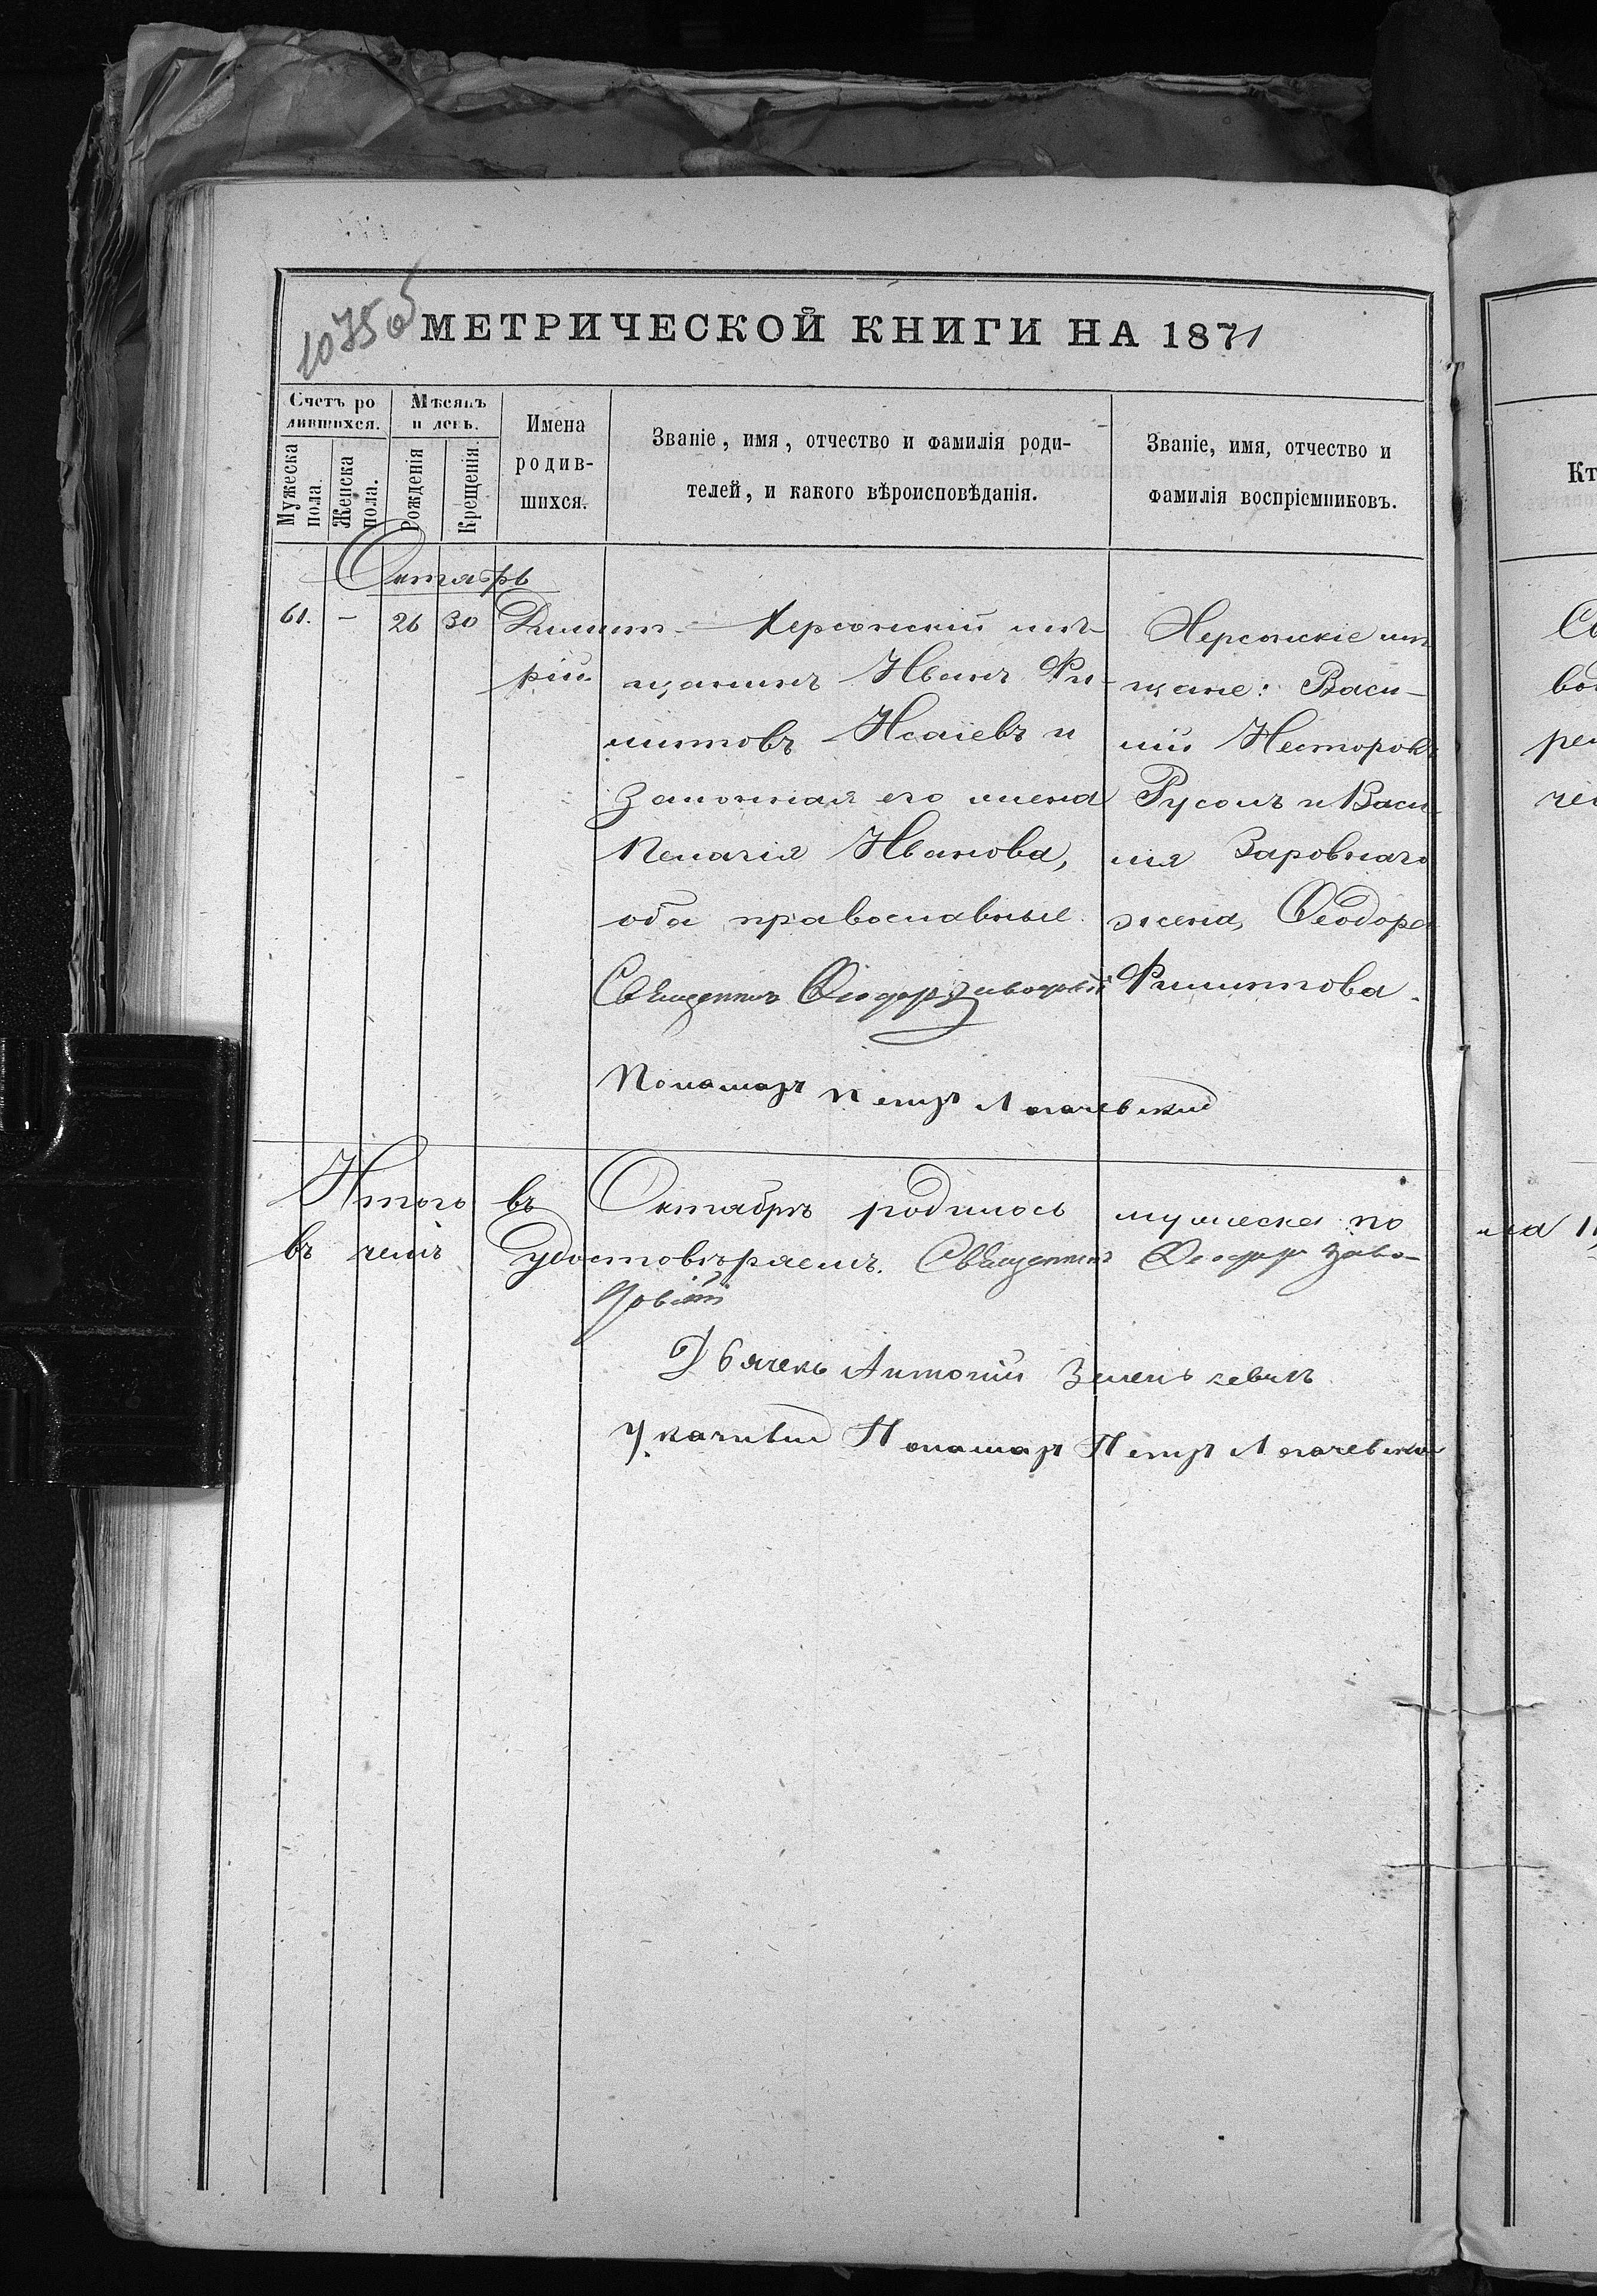 1075 об
МЕТРИЧЕСКОЙ КНИГИ НА 1871
Счетъ ро
дившихся.
Мѣсяцъ
и день.
Мужеска
пола.
Женска
пола.
Рожденія
Крещенія.
Имена
родив-
шихся.
Званіе, имя, отчество и фамилія роди-
телей, и какого вѣроисповѣданія.
Званіе, имя, отчество и
фамилія воспріемниковъ.
Кт
Октябрь
61. – 26 30 Димит-
рій
Херсонскій мѣ-
щанинъ Иванъ Фи-
липовъ Исаіевъ и
законная его жена
Пелагія Иванова,
оба православные.
Священникъ Феодоръ
Пономарь Петръ Логачевский
Херсонскіе мѣ
щане: Васи-
лій Несторовъ
Русолъ и Васи
лія Заровнаго
жена, Феодора
Филиппова.
Итого въ Октябрѣ родилось мужеска по
въ чемъ удостовѣряемъ. Священникъ Феодоръ Заво-
Дьячекъ Антоній
Пономарь Петръ Логачевский
во
ре
че
ла